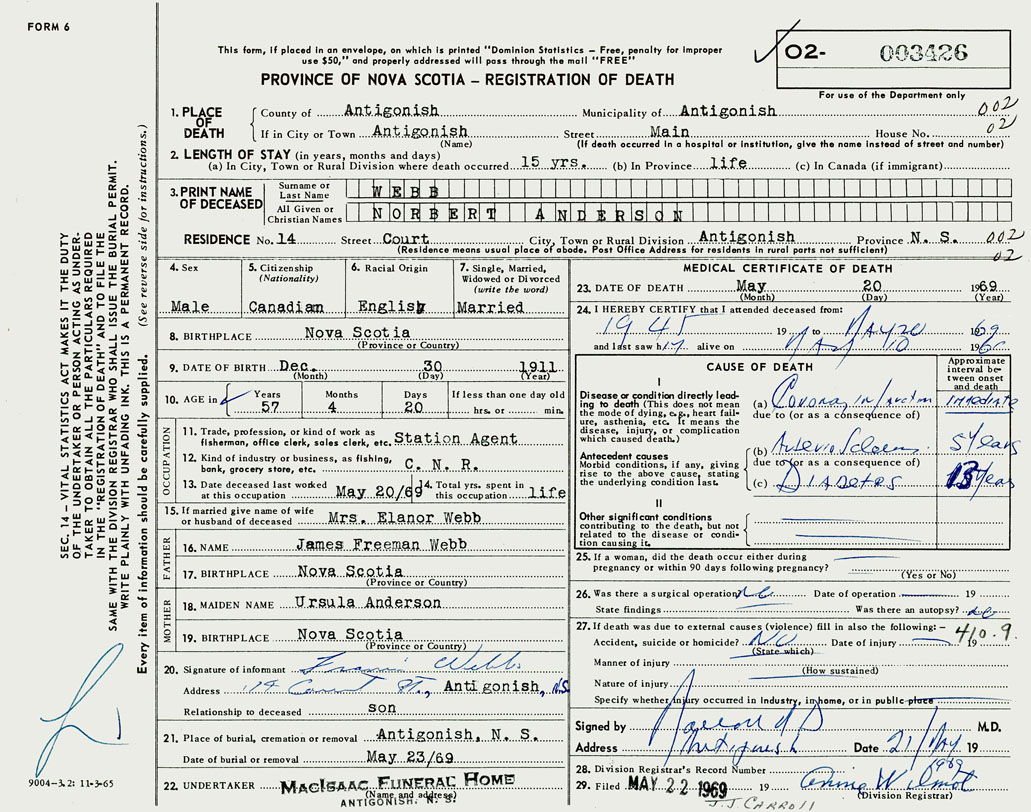 FORM 6
This form, if placed in an envelope, on which is printed "Dominion Statistics – Free, penalty for improper
use $50," and properly addressed will pass through the mail "FREE"
PROVINCE OF NOVA SCOTIA – REGISTRATION OF DEATH
O2- 003426
For use of the Department only
1. PLACE OF DEATH County of Antigonish Municipality of Antigonish 002
If in City or Town Antigonish Street Main House No. 02
(Name) (If death occurred in a hospital or institution, give the name instead of street and number)
2. LENGTH OF STAY (in years, months and days)
(a) In City, Town or Rural Division where death occurred 15 yrs. (b) In Province life (c) In Canada (if immigrant)
3. PRINT NAME OF DECEASED Surname or Last Name WEBB
All Given or Christian Names NORBERT ANDERSON
RESIDENCE No. 14 Street Court City, Town or Rural Division Antigonish Province N. S. 002
(Residence means usual place of abode. Post Office Address for residents in rural parts not sufficient) 02
4. Sex Male
5. Citizenship (Nationality) Canadian
6. Racial Origin English
7. Single, Married, Widowed or Divorced (write the word) Married
8. BIRTHPLACE Nova Scotia
(Province or Country)
9. DATE OF BIRTH Dec. 30 1911
(Month) (Day) (Year)
10. AGE in Years Months Days If less than one day old
57 4 20 hrs. or min.
OCCUPATION
11. Trade, profession, or kind of work as
fisherman, office clerk, sales clerk, etc. Station Agent
12. Kind of industry or business, as fishing,
bank, grocery store, etc. C. N. R.
13. Date deceased last worked
at this occupation May 20/69
14. Total yrs. spent in
this occupation life
15. If married give name of wife
or husband of deceased Mrs. Elanor Webb
FATHER
16. NAME James Freeman Webb
17. BIRTHPLACE Nova Scotia
(Province or Country)
MOTHER
18. MAIDEN NAME Ursula Anderson
19. BIRTHPLACE Nova Scotia
(Province or Country)
20. Signature of informant Webb
Address 14 Court St., Antigonish, N.S.
Relationship to deceased son
21. Place of burial, cremation or removal Antigonish, N. S.
Date of burial or removal May 23/69
22. UNDERTAKER MacIsaac Funeral Home
(Name and address)
ANTIGONISH, N. S.
MEDICAL CERTIFICATE OF DEATH
23. DATE OF DEATH May 20 1969
(Month) (Day) (Year)
24. I HEREBY CERTIFY that I attended deceased from:
1945 19 to May 20 1969
and last saw him alive on May 10 196
CAUSE OF DEATH
Approximate interval between onset and death
I
Disease or condition directly leading to death (This does not mean the mode of dying, e.g., heart failure, asthenia, etc. It means the disease, injury, or complication which caused death.)
(a) Coronary infarction immediate
due to (or as a consequence of)
Antecedent causes
Morbid conditions, if any, giving rise to the above cause, stating the underlying condition last.
(b) 5 years
due to (or as a consequence of)
(c) Diabetes 13 years
II
Other significant conditions contributing to the death, but not related to the disease or condition causing it.
25. If a woman, did the death occur either during
pregnancy or within 90 days following pregnancy?
(Yes or No)
26. Was there a surgical operation? No Date of operation 19
State findings Was there an autopsy? No
27. If death was due to external causes (violence) fill in also the following: – 410.9.
Accident, suicide or homicide? NO Date of injury 19
(State which)
Manner of injury
(How sustained)
Nature of injury
Specify whether injury occurred in industry, in home, or in public place
Signed by M.D.
Address Antigonish Date 21/May 19
28. Division Registrar's Record Number 1969
29. Filed MAY 22 1969 19
(Division Registrar)
J.J CARROLL
SEC. 14 – VITAL STATISTICS ACT MAKES IT THE DUTY
OF THE UNDERTAKER OR PERSON ACTING AS UNDER-
TAKER TO OBTAIN ALL THE PARTICULARS REQUIRED
IN THE "REGISTRATION OF DEATH" AND TO FILE THE
SAME WITH THE DIVISION REGISTRAR WHO SHALL ISSUE THE BURIAL PERMIT.
WRITE PLAINLY WITH UNFADING INK. THIS IS A PERMANENT RECORD.
Every item of information should be carefully supplied. (See reverse side for instructions.)
9004-3.2: 11-3-65